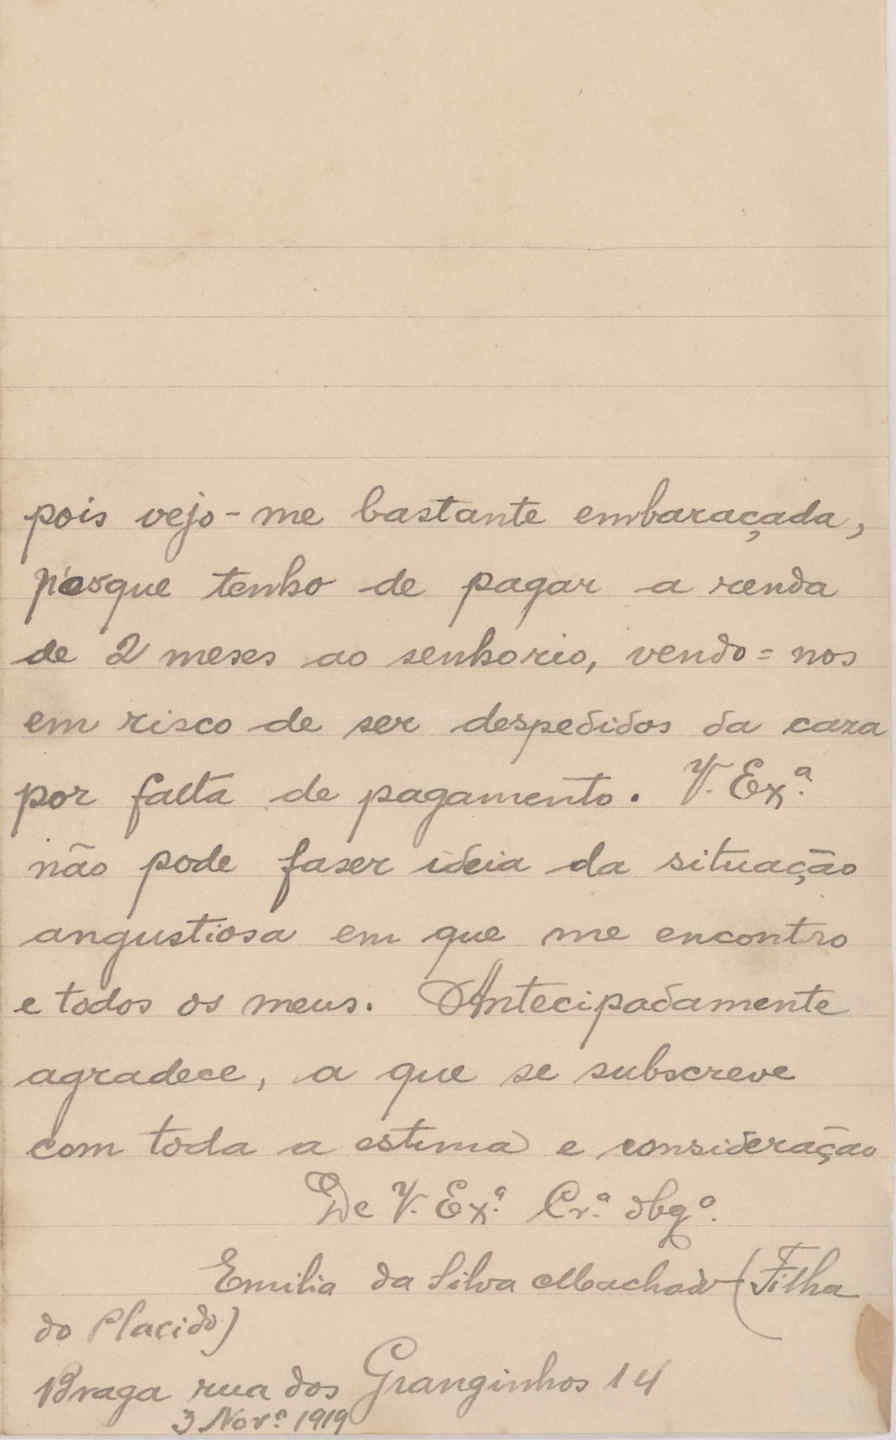 pois vejo-me bastante embaraçada,
porque tenho de pagar a renda
de 2 meses ao senhorio, vendo=nos
em risco de ser despedidos da caza
por falta de pagamento. V. Exª.
não pode faser ideia da situação
angustiosa em que me encontro
e todos os meus. Antecipadamente
agradece, a que se subscreve
com toda a estima e consideração
De V. Exª. Crª. obgº.
Emilia da Silva Machado (Filha
do Placido)
Braga rua dos Granginhos 14
3 Novº 1919